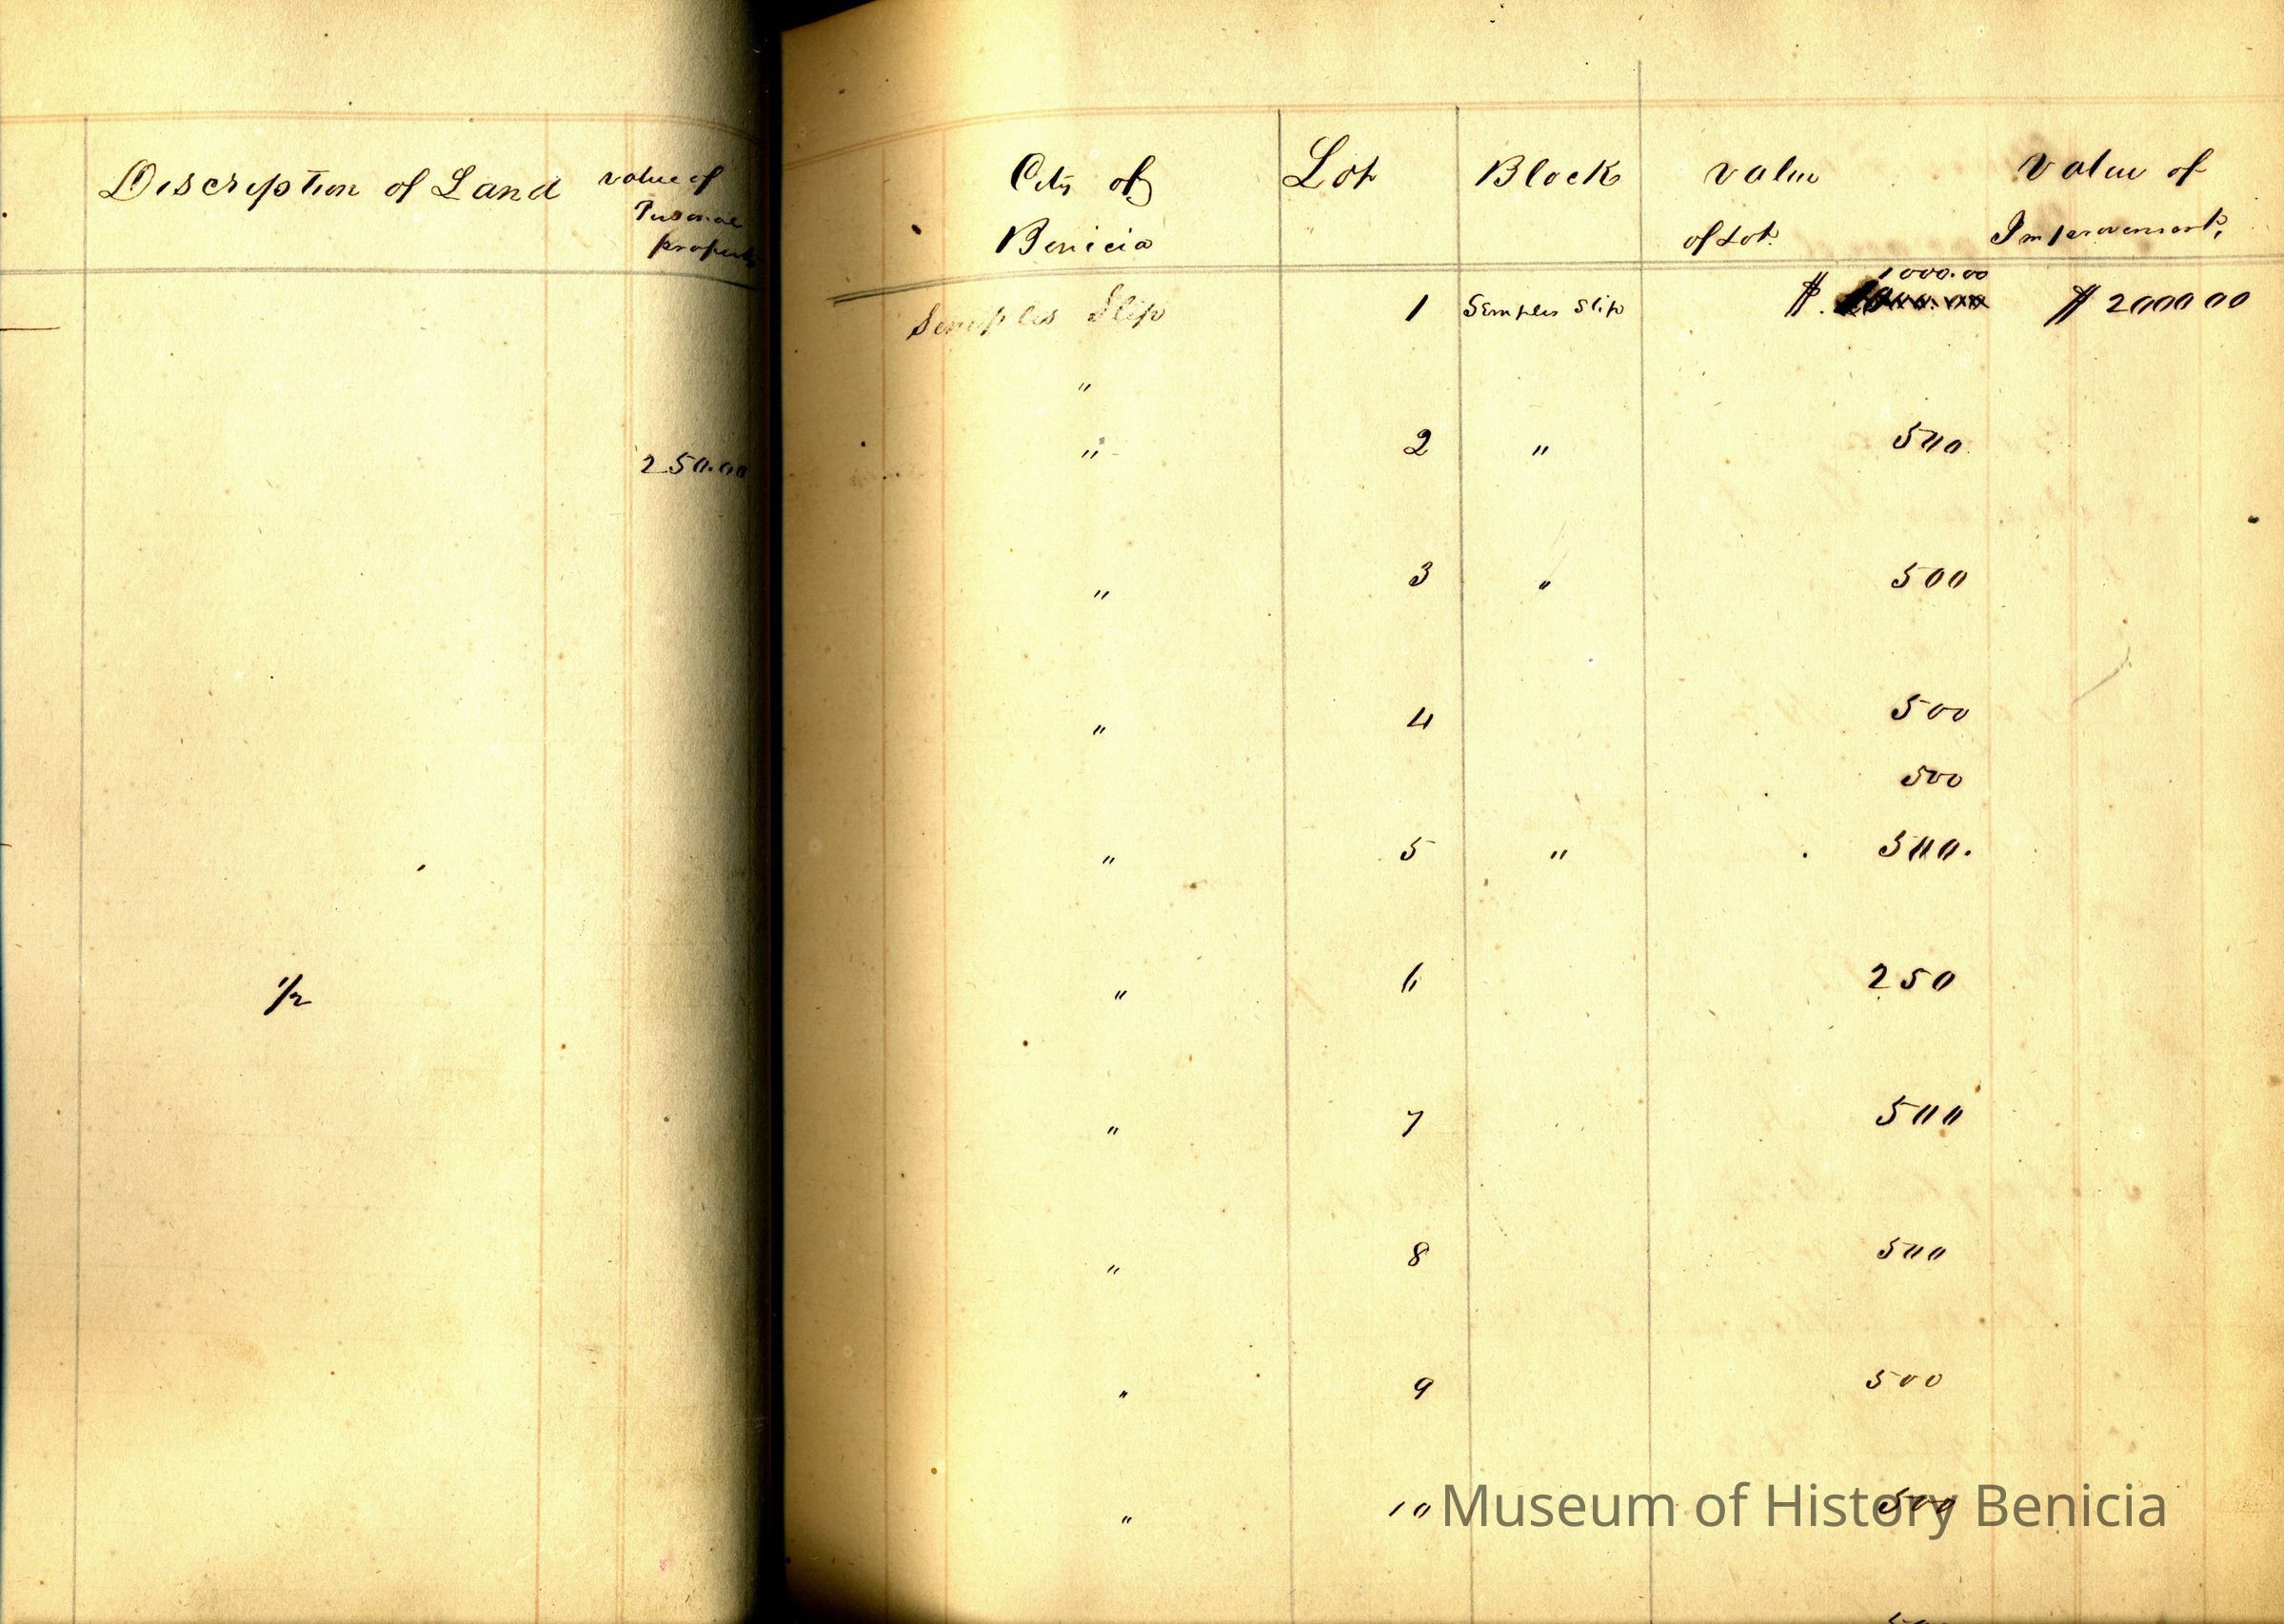 Discription of Land value of
Personal
property
250.00
1/2
City of Lot Block value value of
Benicia of Lot. Improvements,
1000.00
Semples Slip 1 Semples Slip $. $ 2000 00
"
" 2 " 500
" 3 " 500
" 4 500
500
" 5 " 500.
" 6 250
" 7 500
" 8 500
" 9 500
" 10 500
Museum of History Benicia